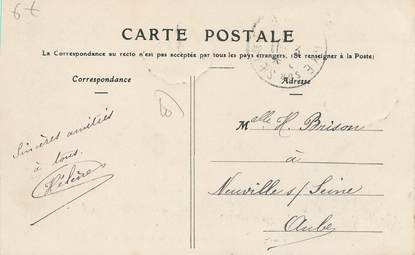 6 €
CARTE POSTALE
La Correspondance au recto n'est pas acceptée par tous les pays étrangers, (Se renseigner à la Poste)
Correspondance
Adresse
Sincères amitiés
à tous.
Hélène
Melle H. Brison
à
Neuville s/ Seine
Aube